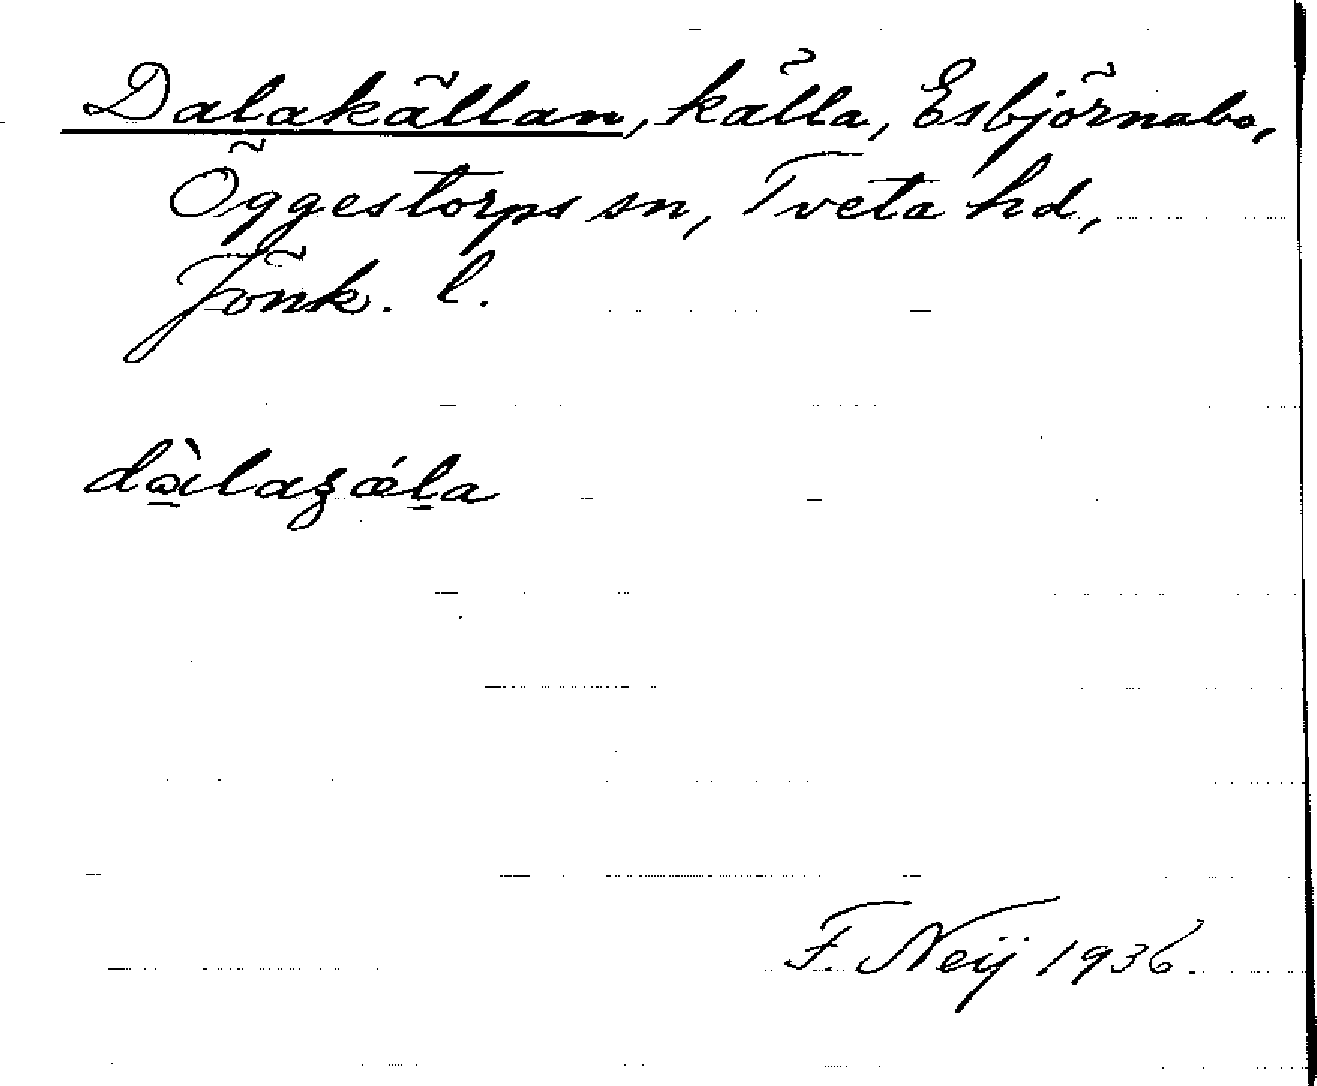 Dalakällan, källa, Esbjörnabo,
Öggestorps sn, Tveta hd,
Jönk. l.
F. Neij 1936.